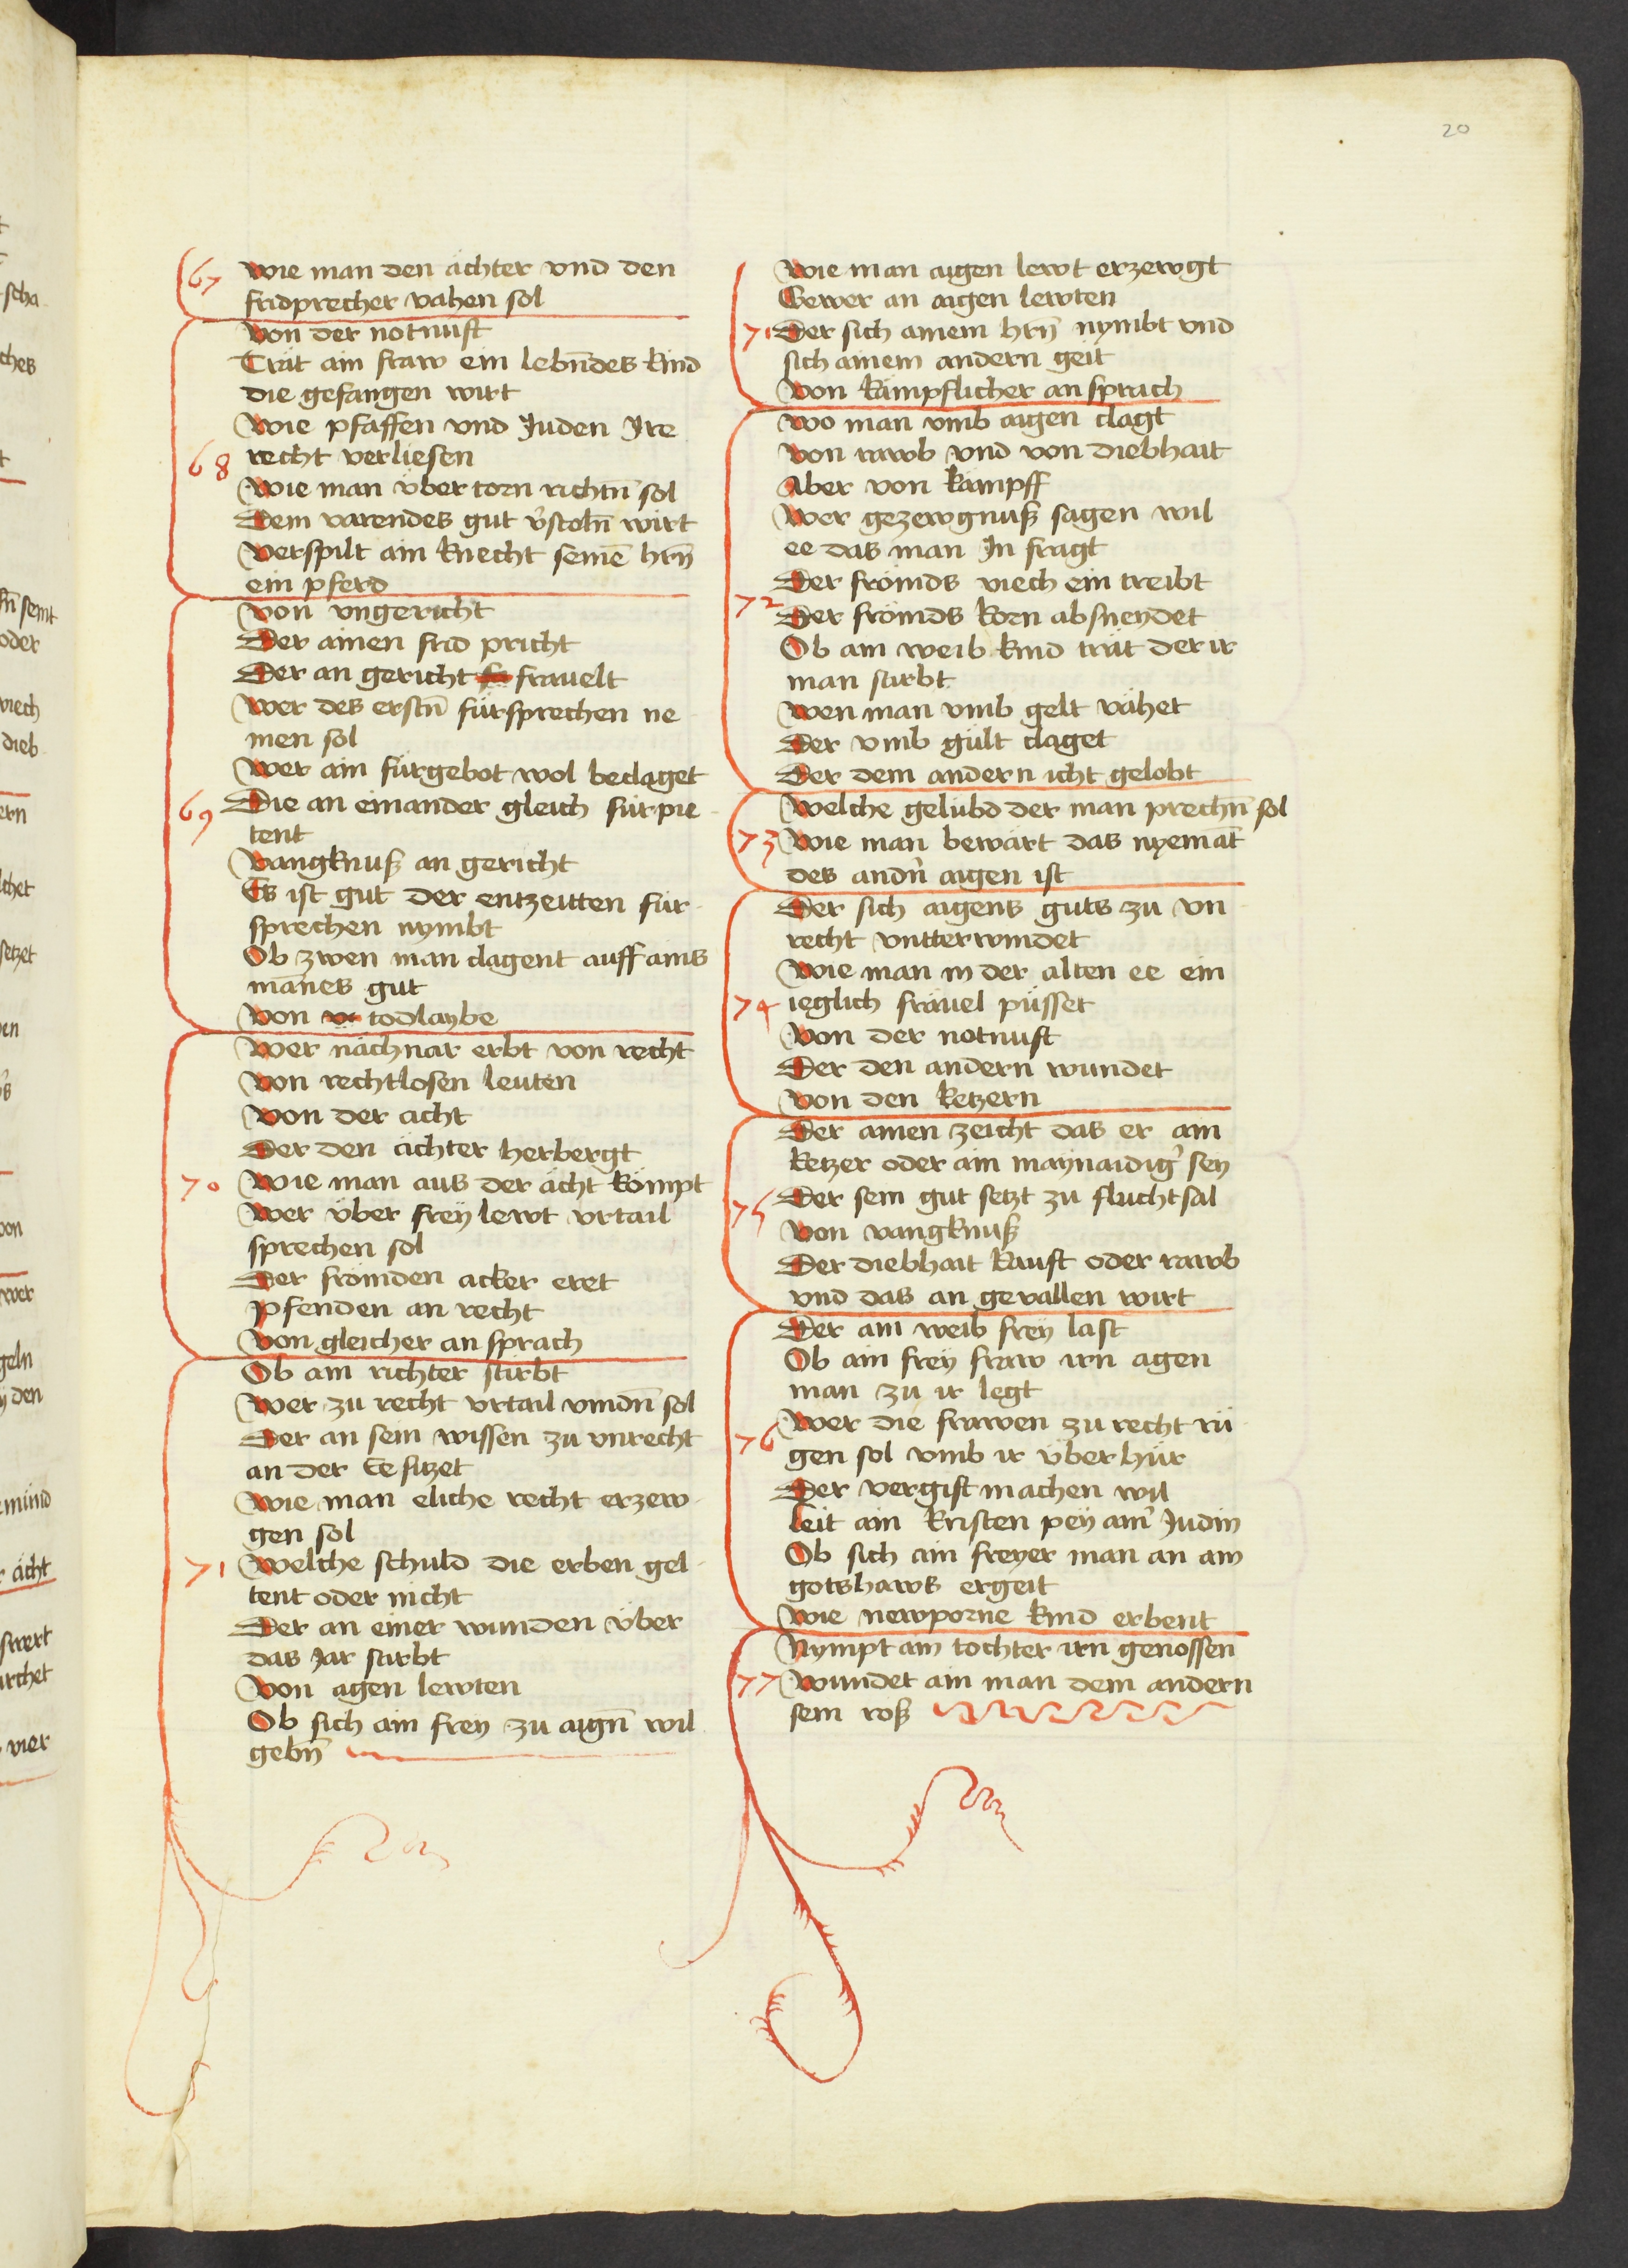 20
67 wie man den ächter vnd den
fridprecher vahen sol
von der notnuft
Trät ain fraw ein lebn̄des kind
die gefangen wirt
wie pfaffen vnd Juden Jre
68 recht verliesen
wie man v̈ber torn richtn̄ sol
Dem varendes gut v̓stoln̄ wirt
verspilt ain knecht seinē hrn̄
ein pferd
von vngericht
Der ainen frid pricht
Der an gericht frauelt
wer des erstn̄ fürsprechen ne
men sol
wer ain fürgebot wol beclaget
69 Die an einander gleich für pie
tent
vangknuß an gericht
Es ist gut der entzeitten für
sprechen nymbt
Ob zwen man clagent auff ains
mānes gut
von todlaybe
wer nächnar erbt von recht
von rechtlosen leuten
von der acht
Der den ächter herbergt
70 wie man aus der ächt kömpt
wer v̈ber frey lewt vrtail
sprechen sol
Der frömden acker eret
pfenden an recht
von gleicher an sprach
Ob ain richter stirbt
wer zu recht vrtail vindn̄ sol
Der an sein wissen zu vnrecht
an der Ee sitzet
wie man eliche recht erzew
gen sol
71 welche schuld die erben gel
tent oder nicht
Der an einer wunden v̈ber
das Jar stirbt
von agen lewten
Ob sich ain frey zu aign̄ wil
gebn̄
wie man aigen lewt erzewgt
Gewer an aigen lewten
71 Der sich ainem hrn̄ nymbt vnd
sich ainem andern geit
von kämpflicher an sprach
wo man vmb aigen clagt
von rawb vnd von diebhait
Aber von kampff
wer gezewgnuß sagen wil
ee das man Jn fragt
Der frömds viech ein treibt
72 Der frömds korn absneydet
Ob ain weib kind trät der ir
man stirbt
wen man vmb gelt vähet
Der vmb gült claget
Der dem andern icht gelobt
welche gelübd der man prechn̄ sol
73 wie man bewärt das nyemāt
des andn̓ aigen ist
Der sich aigens guts zu vn
recht vntterwindet
wie man in der alten ee ein
74 ieglich fräuel püsset
von der notnuft
Der den andern wundet
von den ketzern
Der ainen zeicht das er ain
ketzer oder ain maynaidig̓ sey
75 Der sein gut setzt zu fluchtsal
von vangknuß
Der diebhait kauft oder rawb
vnd das an geuallen wirt
Der ain weib frey last
Ob ain frey fraw irn agen
man zu ir legt
76 wer die frawen zu recht rü
gen sol vmb ir v̈berhür
Der vergift machen wil
leit ain kristen pey ain̓ Judin
Ob sich ain freyer man an ain
gotshaws ergeit
wie newporne kind erbent
Nympt ain tochter irn genossen
77 wundet ain man dem andern
sein roß